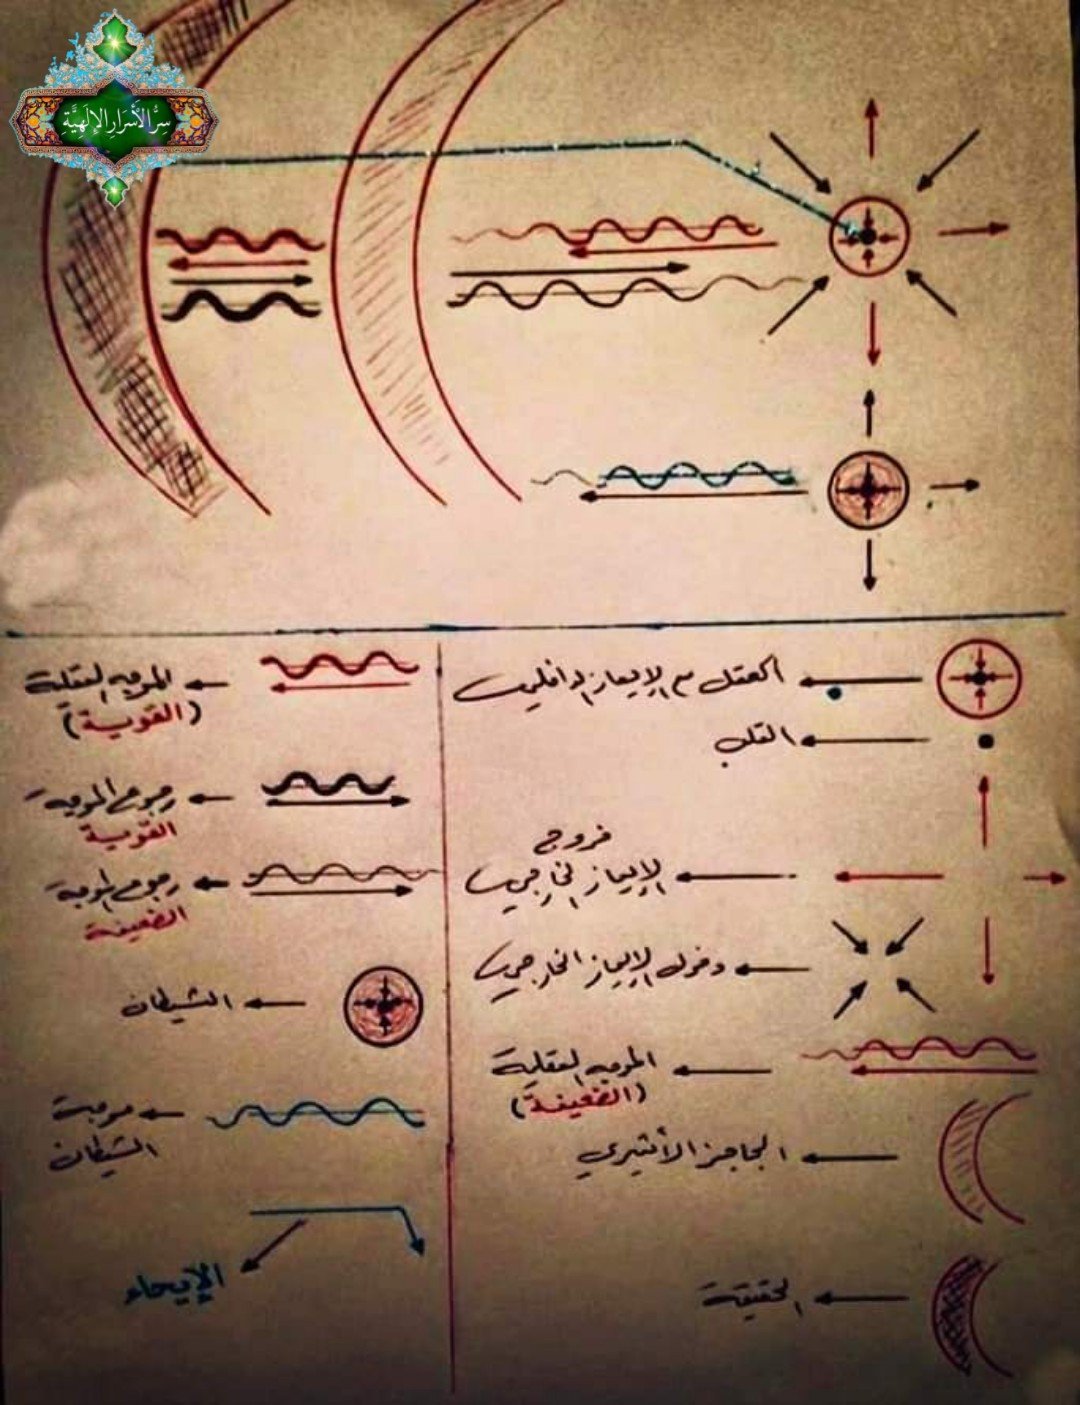 سِرُّ الأَسْرَارِ الإِلَهِيَّةِ
العقل مع الإيعاز الداخلي
القلب
خروج
الإيعاز الخارجي
دخول الإيعاز الخارجي
الموجه العقلية
(الضعيفة)
الحاجز الأثيري
الحقيقة
الموجه العقلية
(القوية)
رجوع الموجة
القوية
رجوع الموجة
الضعيفة
الشيطان
موجة
الشيطان
الإيحاء